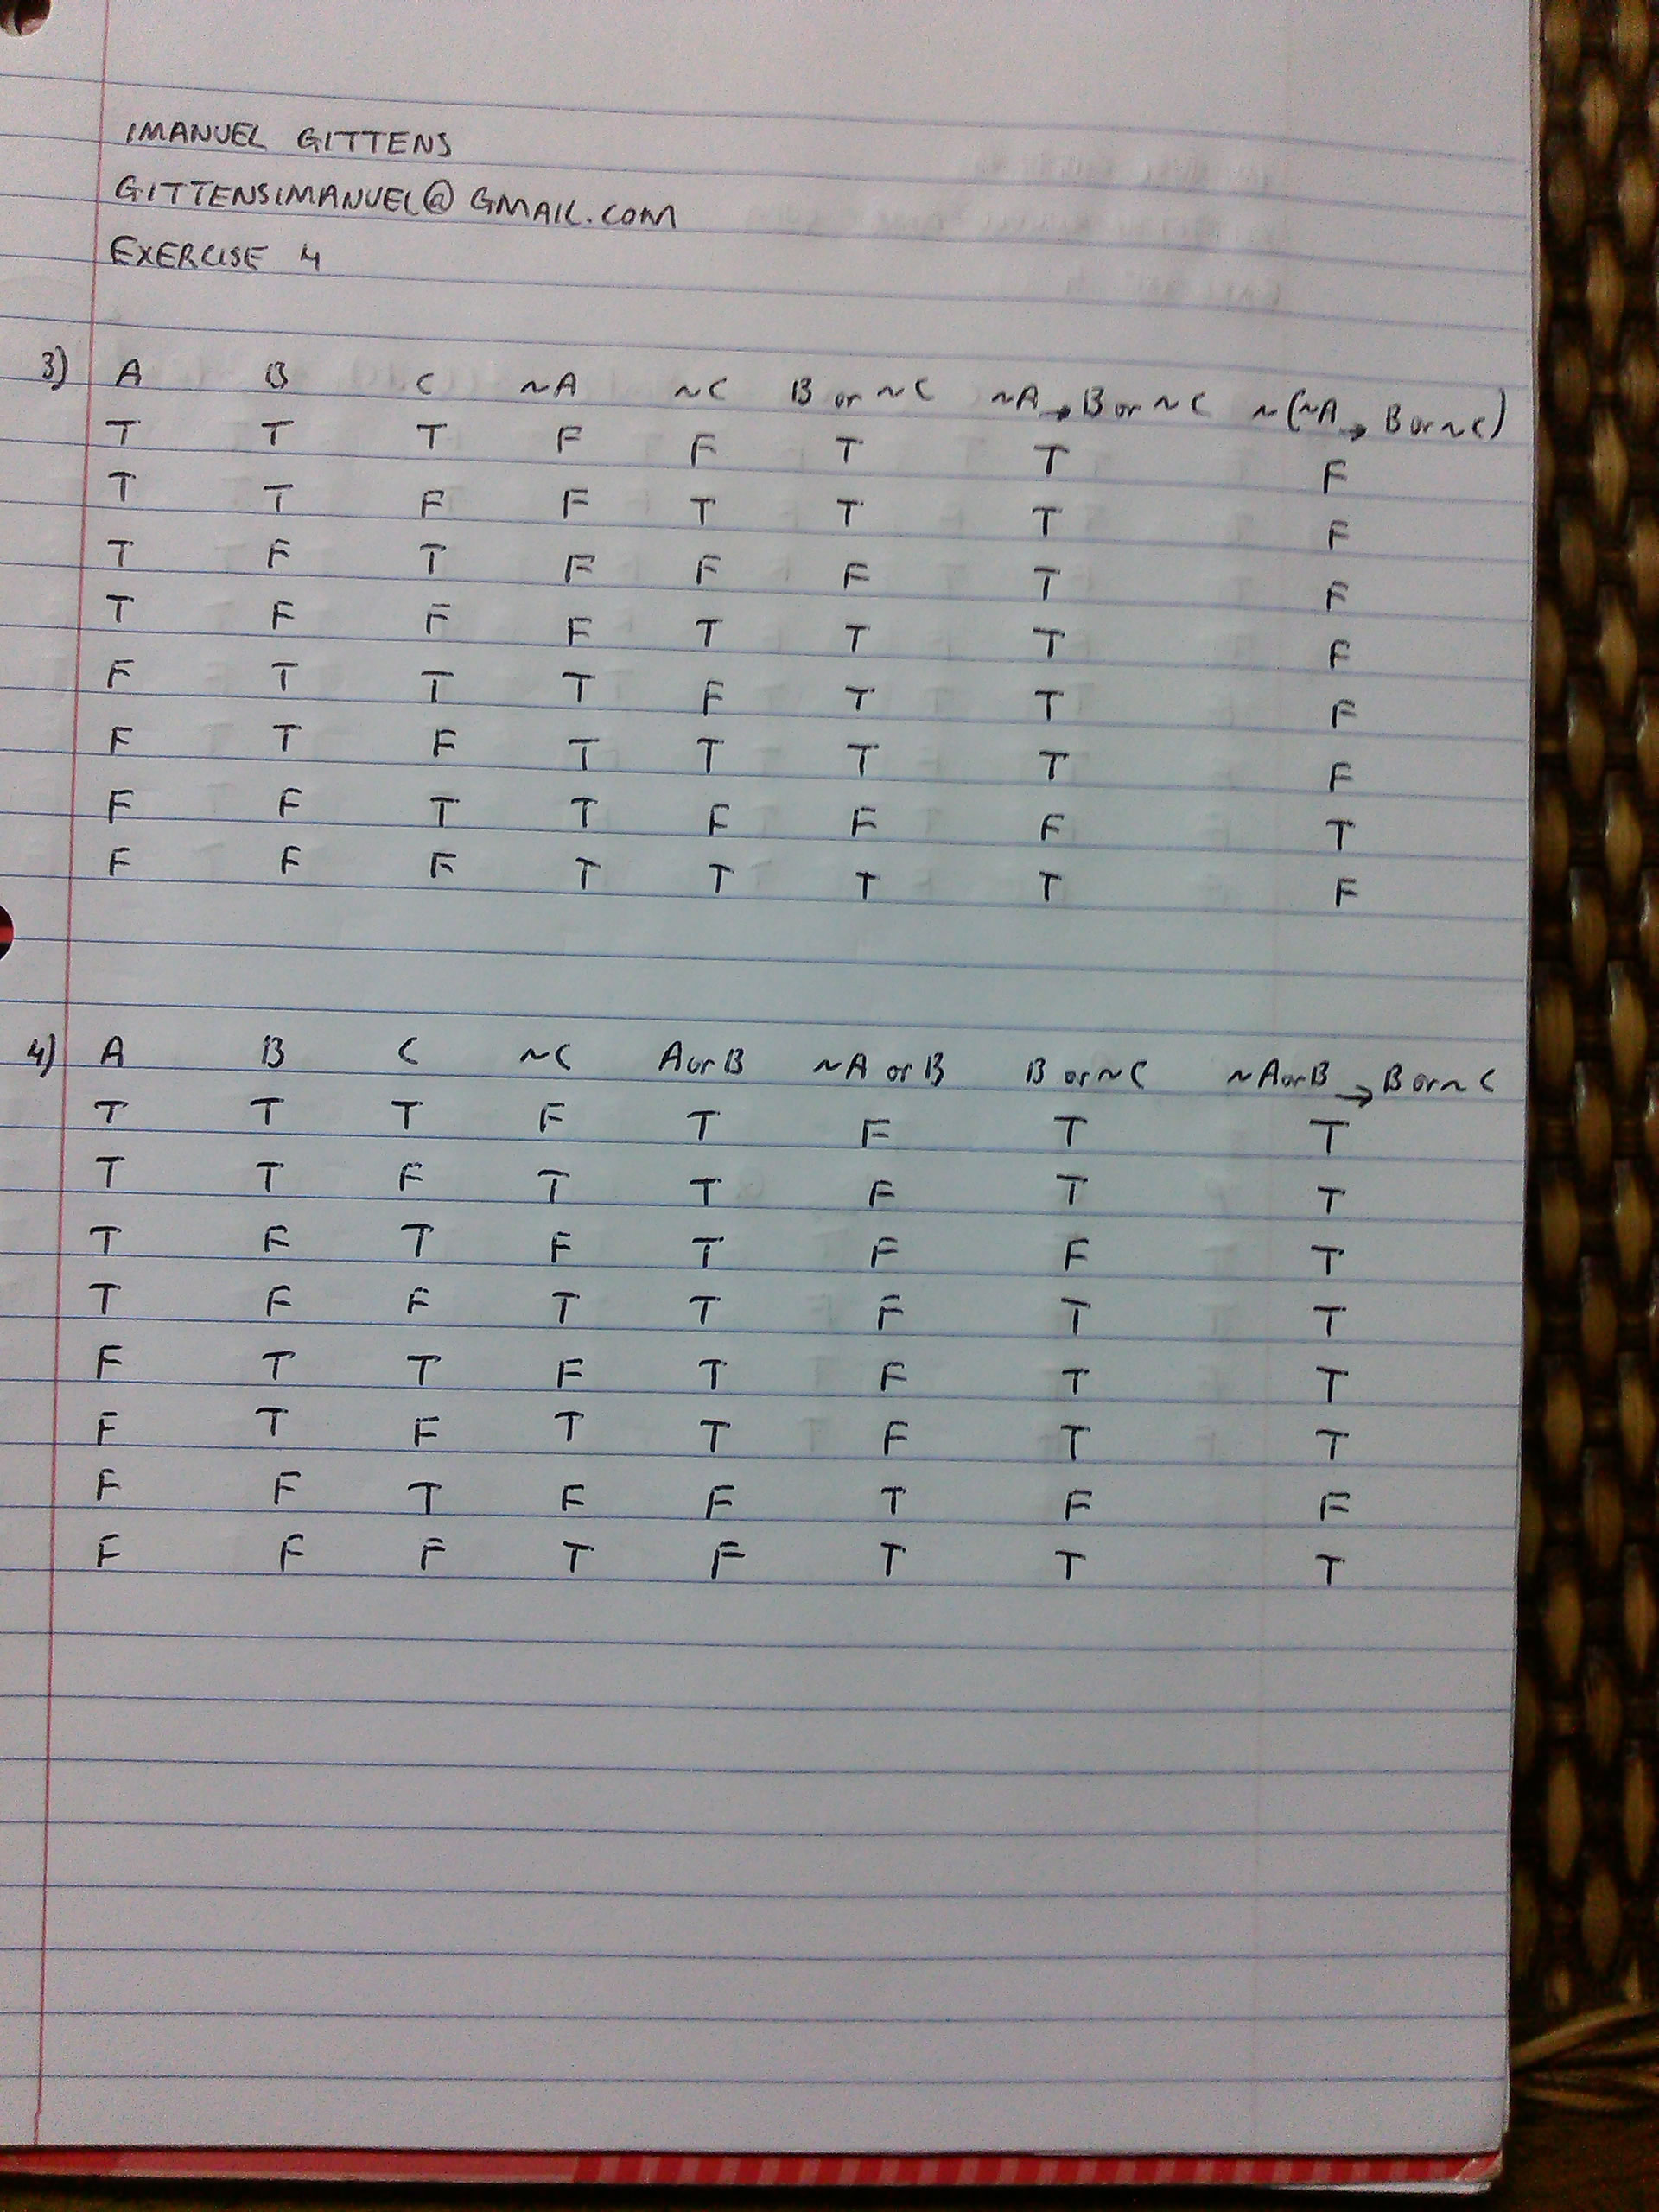 IMANUEL GITTENS
GITTENSIMANUEL@GMAIL.COM
EXERCISE 4
3) A B C ~A ~C B or ~C ~A → B or ~C ~(~A → B or ~C)
T T T F F T T F
T T F F T T T F
T F T F F F T F
T F F F T T T F
F T T T F T T F
F T F T T T T F
F F T T F F F T
F F F T T T T F
4) A B C ~C A or B ~A or B B or ~C ~A or B → B or ~C
T T T F T F T T
T T F T T F T T
T F T F T F F T
T F F T T F T T
F T T F T F T T
F T F T T F T T
F F T F F T F F
F F F T F T T T